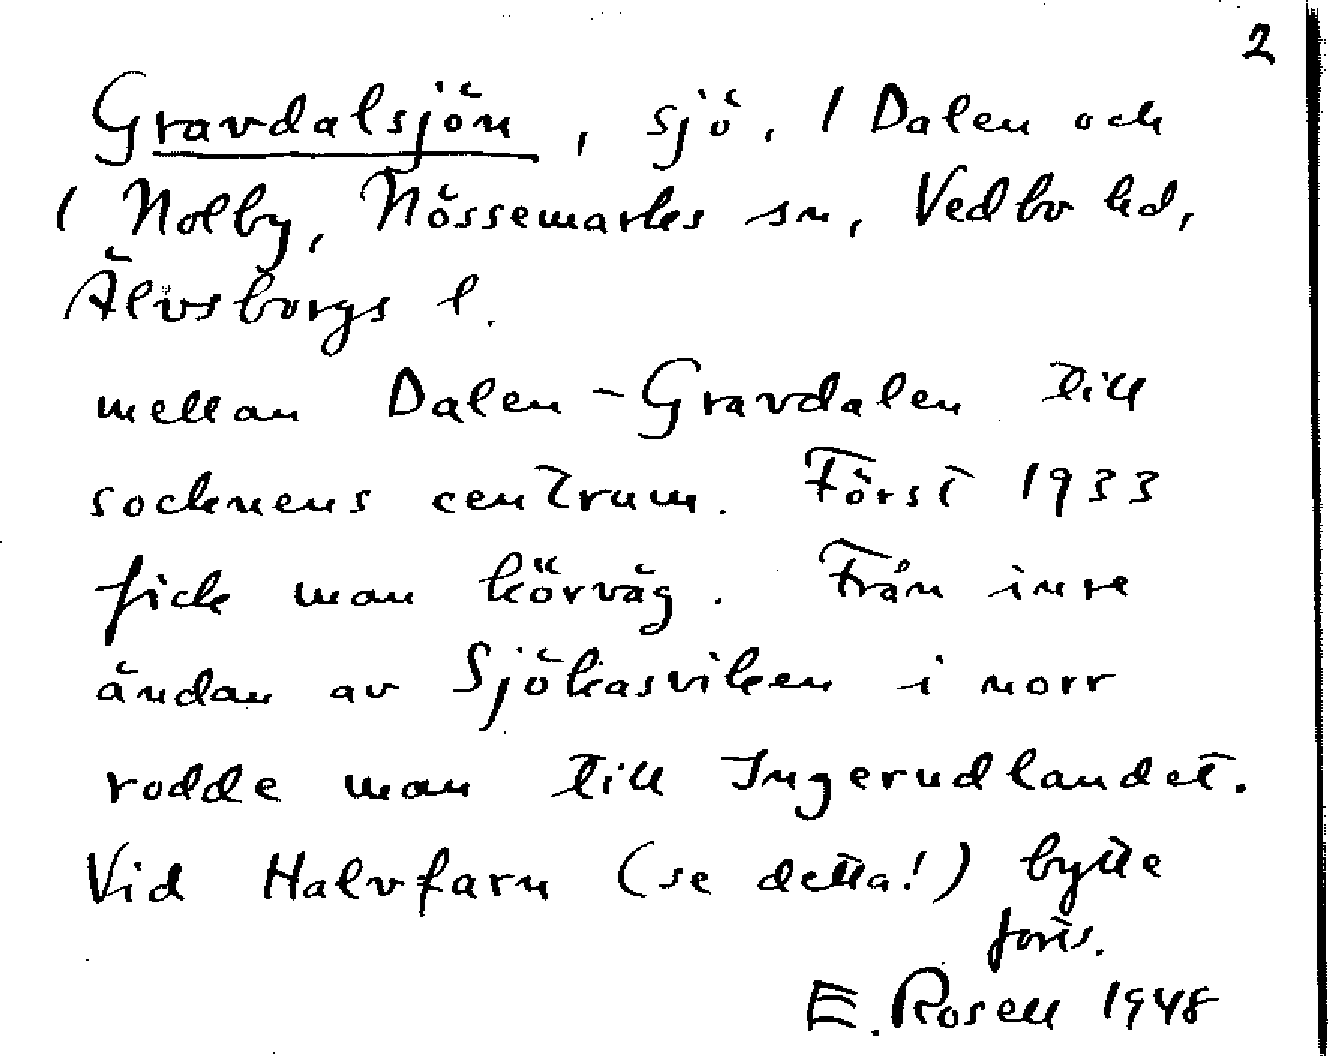 2
Gravdalsjön, sjö. 1 Dalen och
1 Nolby, Nössemarks sn, Vedbo hd,
Älvsborgs l.
mellan Dalen - Gravdalen till
socknens centrum. Först 1933
fick man körväg. Från inre
ändan av Sjökasviken i norr
rodde man till Ingerudlandet.
Vid Halvfarn (se detta!) bytte
forts.
E. Rosell 1948